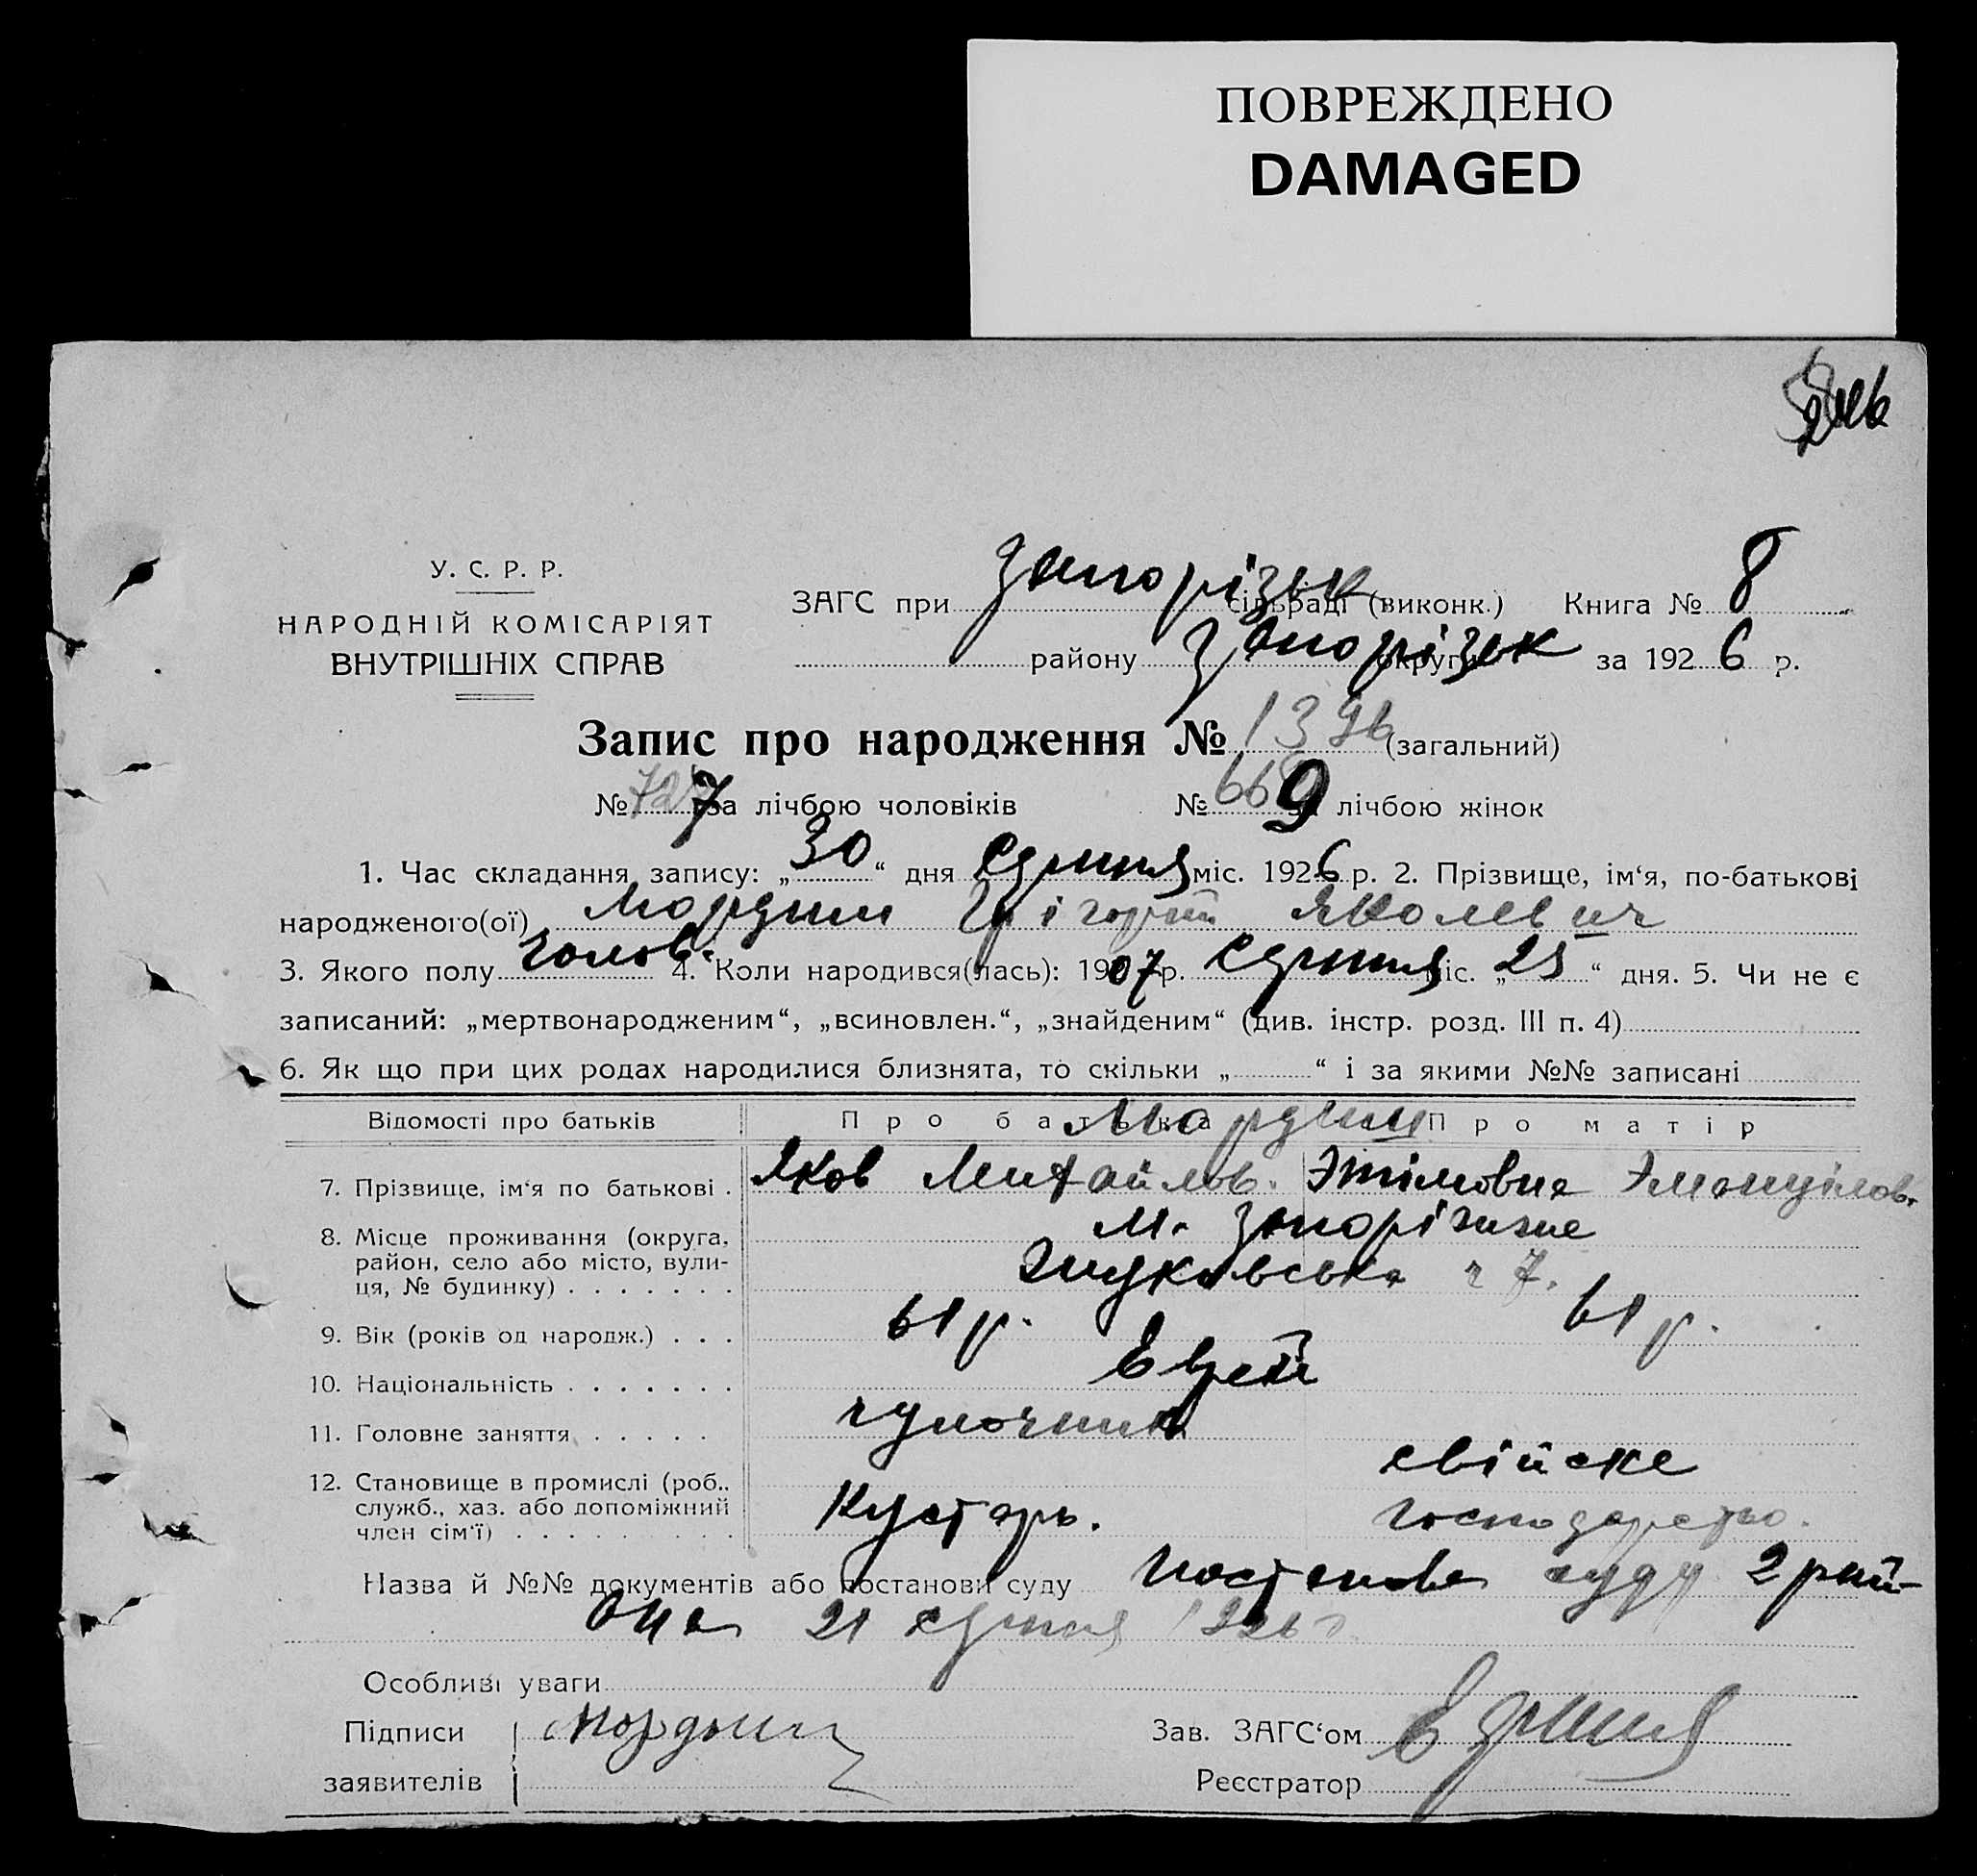 ПОВРЕЖДЕНО
DAMAGED
У. С. Р. Р.
НАРОДНІЙ КОМІСАРІЯТ
ВНУТРІШНІХ СПРАВ
ЗАГС при Запорізьк. сільраді (виконк.) Книга № 8
району Запорізьк округи за 1926 р.
Запис про народження № 1396 (загальний)
№ 727 за лічбою чоловіків № 669 лічбою жінок
1. Час складання запису: „30“ дня Серпня міс. 1926 р. 2. Прізвище, ім‘я, по-батькові
народженого(ої) Мордкин Грігорій Яколевич
3. Якого полу голов. 4. Коли народився(лась): 1907 р. Серпня міс. „25“ дня. 5. Чи не є
записаний: „мертвонародженим“, „всиновлен.“, „знайденим“ (див. інстр. розд. III п. 4)
6. Як що при цих родах народилися близнята, то скільки „ “ і за якими №№ записані
Відомості про батьків Про батька Про матір
7. Прізвище, ім‘я по батькові . Яков Михайлов.
8. Місце проживання (округа, м. Запоріжже
район, село або місто, вули-
ця, № будинку) . . . . . . . ч 7.
9. Вік (років од народж.) . . . 61 р. 61 р.
10. Національність . . . . . . . Еврей
11. Головне заняття . . . . .
12. Становище в промислі (роб., свійске
служб., хаз. або допоміжний Кустарь. господарство.
член сім‘ї) . . . . . . . . .
Назва й №№ документів або постанови суду постанова суду 2 рай-
она 21 серпня 1926 г.
Особливі уваги
Підписи Мордкин Зав. ЗАГС‘ом
заявителів Реєстратор